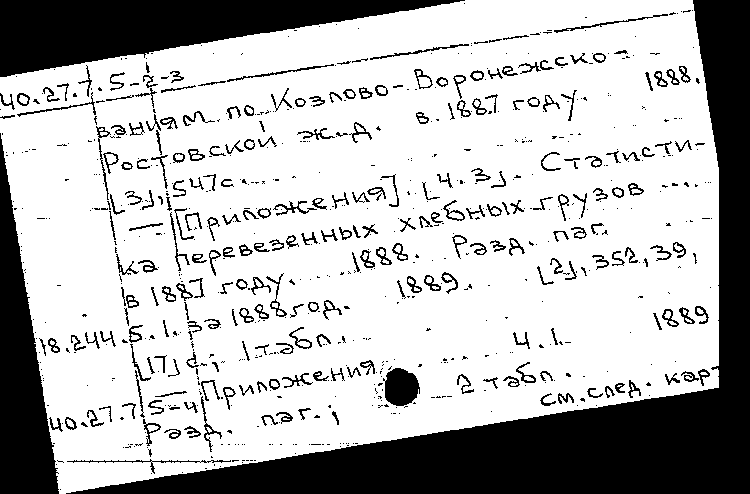 40.27.7.5-2-3
ваниям по Козлово-Воронежско-
Ростовской ж.д. в 1887 году. 1888.
[3], 547с.
— [Приложения]. [Ч.3]. Статисти-
ка перевезенных хлебных грузов ...
в 1887 году. 1888. Разд. паг.
18.244.5.1. за 1888 год. 1889. [2], 352, 39,
[17] с.; 1 табл.
40.27.7.5-4 — Приложения Ч.1. 1889
Разд. паг.; 2 табл.
см. след. карт